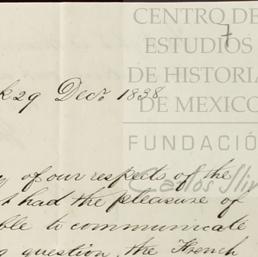 CENTRO DE
ESTUDIOS
7
DE HISTORIA
DE MEXICO
29 Decr 1838
FUNDACIÓ
Carlos Sli
of our respects of the
had the pleasure of
ble to communicate
question, the French